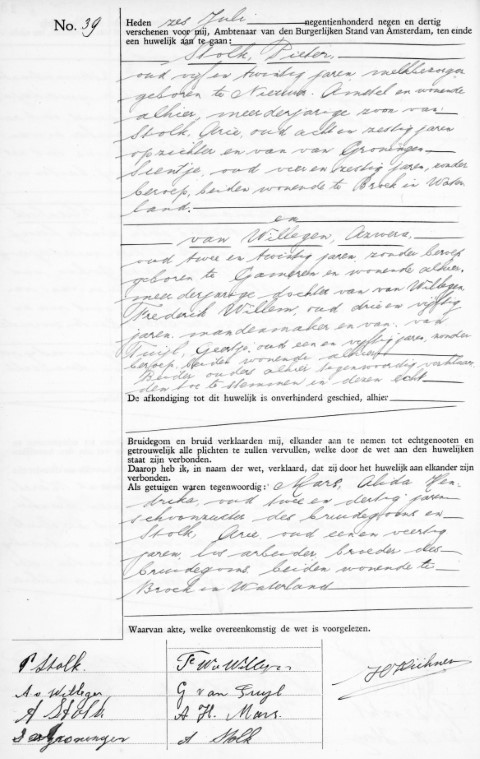 No. 39
Heden zes Juli negentienhonderd negen en dertig
verschenen voor mij, Ambtenaar van den Burgerlijken Stand van Amsterdam, ten einde
een huwelijk aan te gaan:
Stolk, Pieter,
oud vijf en twintig jaren, melkbezorger
geboren te Nieuwer-Amstel en wonende
alhier, meerderjarige zoon van
Stolk, Arie, oud acht en zestig jaren
opzichter en van van Groningen
Sientje, oud vier en zestig jaren, zonder
beroep, beiden wonende te Broek in Water
land.
en
van Willegen, Azwera,
oud twee en twintig jaren, zonder beroep
geboren te Gameren en wonende alhier,
meerderjarige dochter van van Willegen
Frederik Willem, oud drie en vijftig
jaren, mandenmaker en van van
Tuijl, Geertje, oud een en vijftig jaren, zonder
beroep, beiden wonende alhier.
Beider ouders alhier tegenwoordig verklaar
den toe te stemmen in dezen echt.
De afkondiging tot dit huwelijk is onverhinderd geschied, alhier
Bruidegom en bruid verklaarden mij, elkander aan te nemen tot echtgenooten en
getrouwelijk alle plichten te zullen vervullen, welke door de wet aan den huwelijken
staat zijn verbonden.
Daarop heb ik, in naam der wet, verklaard, dat zij door het huwelijk aan elkander zijn
verbonden.
Als getuigen waren tegenwoordig: Mars, Alida Hen-
drika, oud twee en dertig jaren
schoonzuster des bruidegoms en
Stolk, Arie, oud een en veertig
jaren, los arbeider, broeder des
bruidegoms, beiden wonende te
Broek in Waterland
Waarvan akte, welke overeenkomstig de wet is voorgelezen.
P Stolk. F. W. v Willegen
A. v. Willegen G van Tuyl
A Stolk A H. Mars.
S v Groningen A Stolk